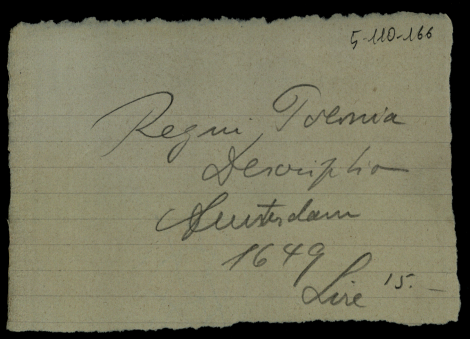 5-110-166
Regni Boemia
Descriptio
Amsterdam
1649
Lire 15.-